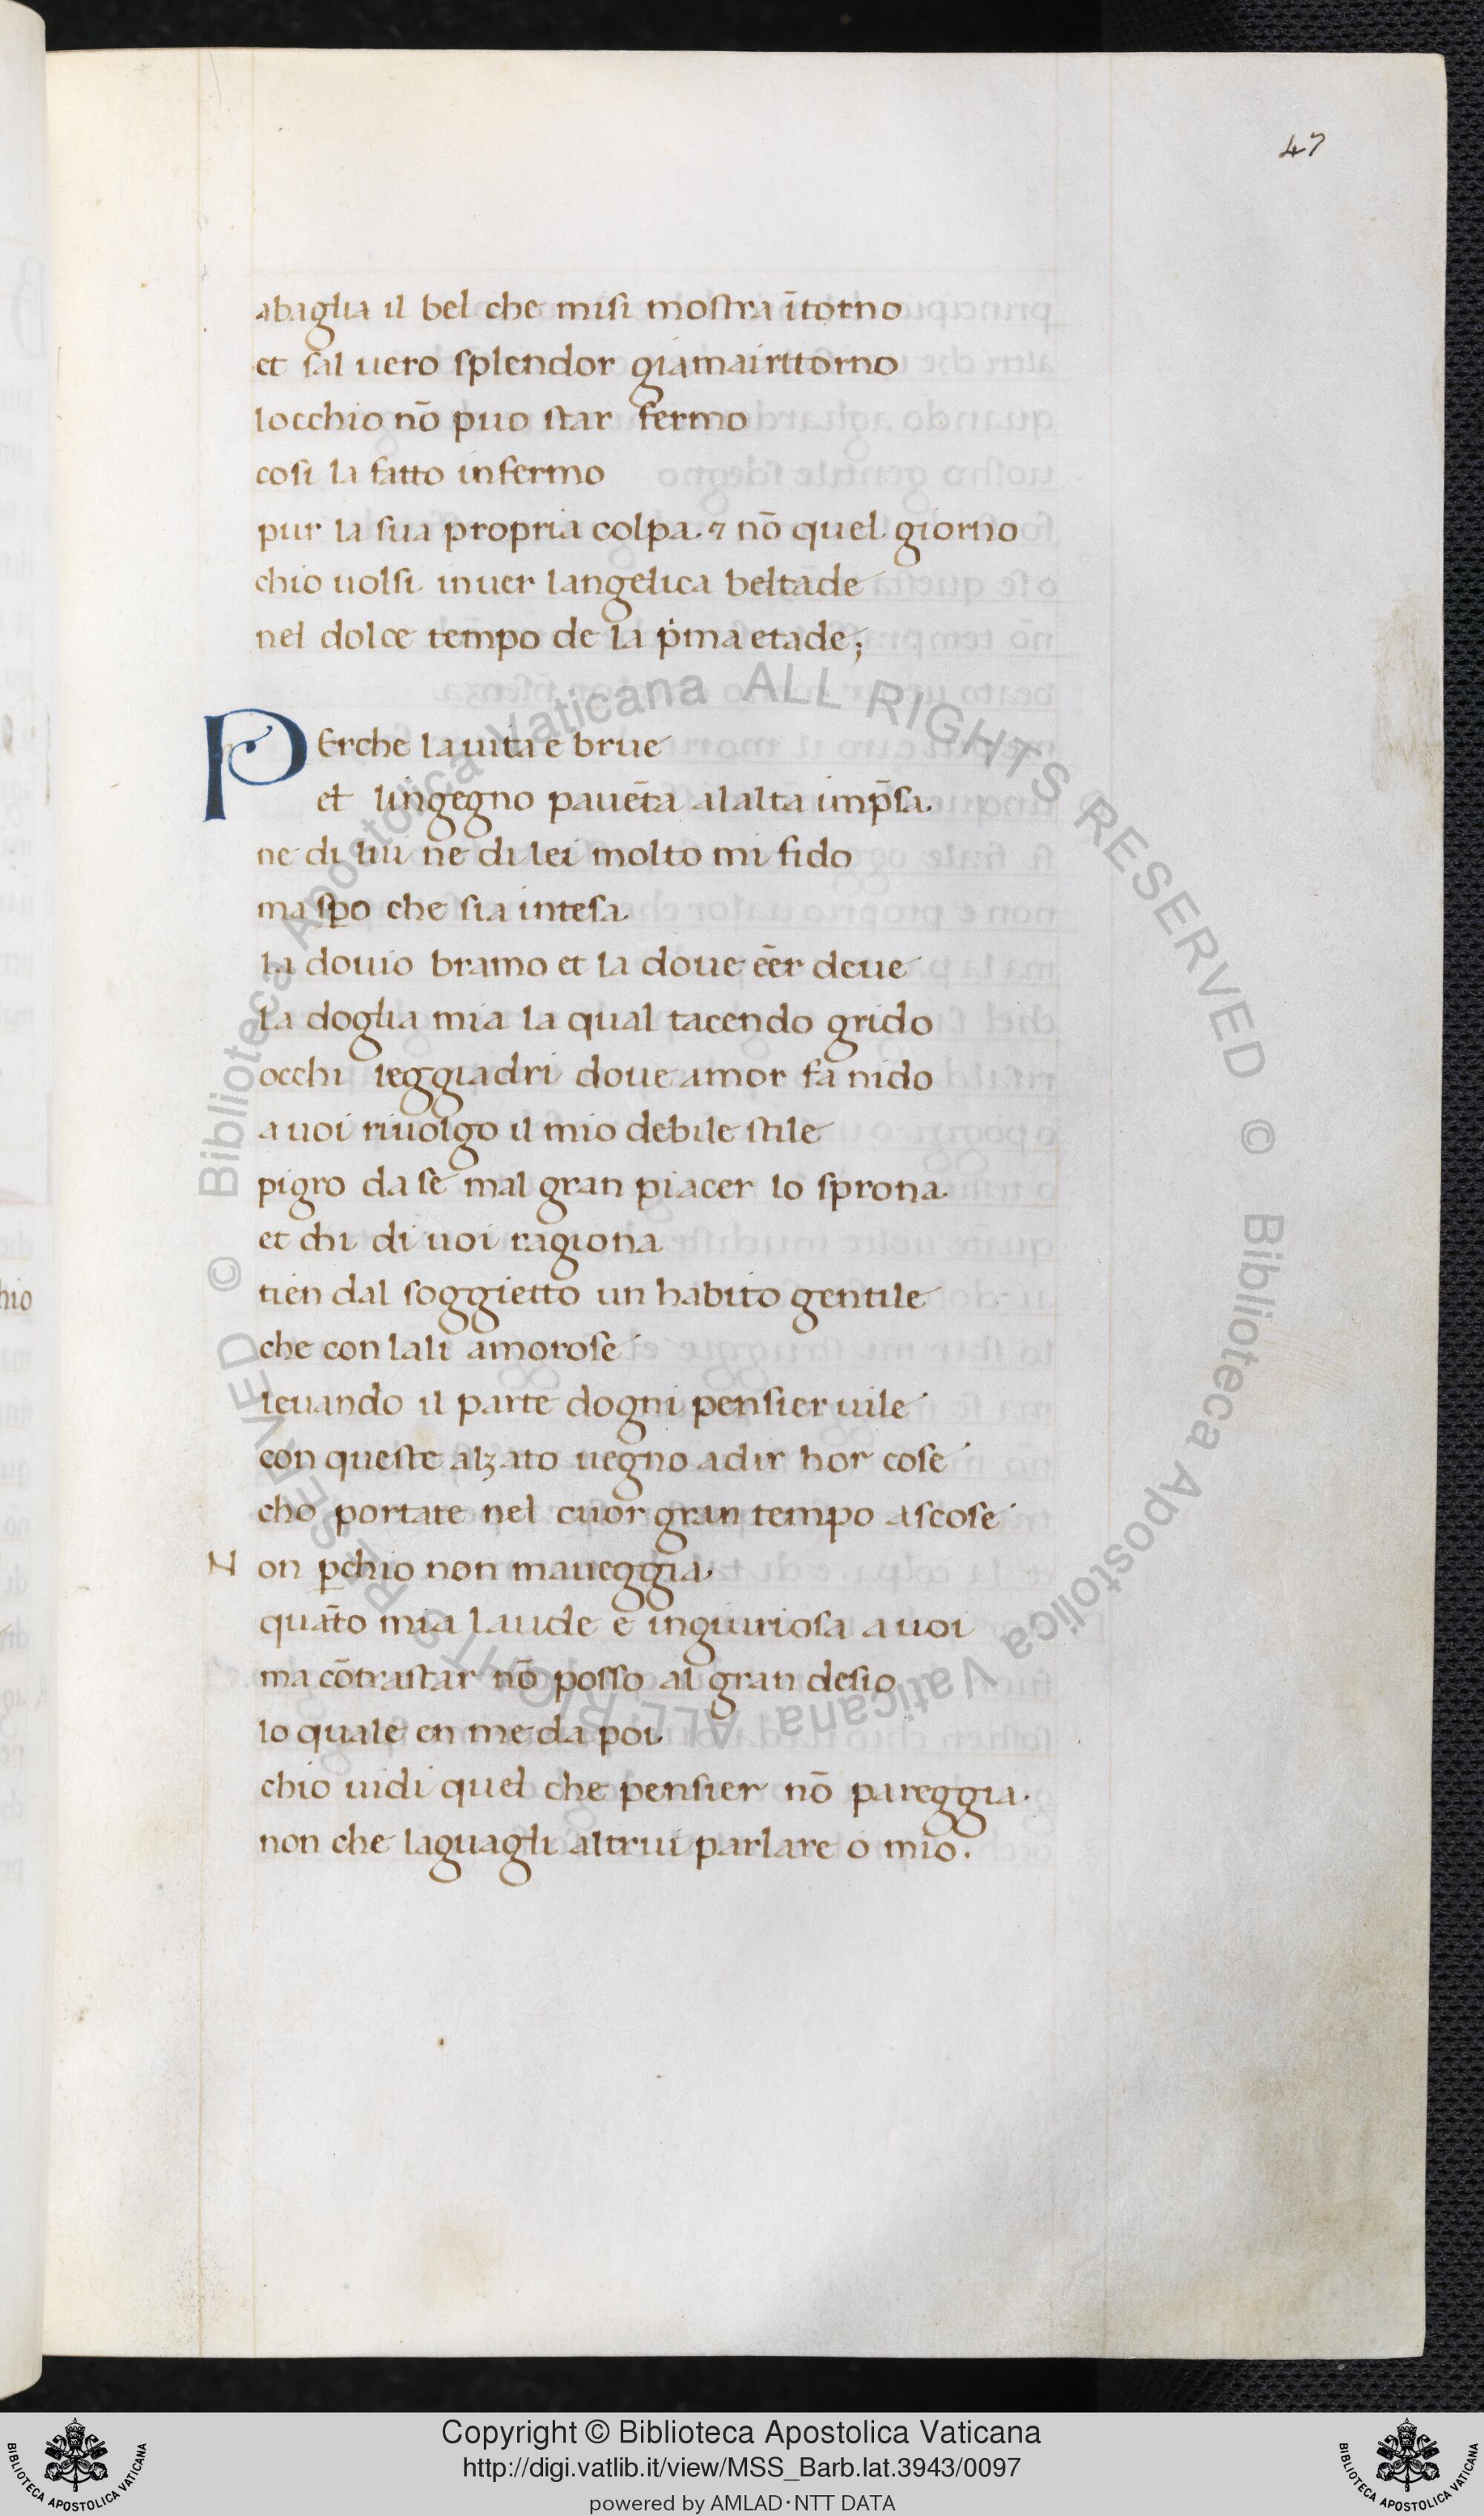 47
abaglia il bel che misi mostra ītorno
et sal uero splendor giamairittorno
locchio nō puo star fermo
cosi la fatto infermo
pur la sua propria colpa. ⁊ nō quel giorno
chio uolsi inuer langelica beltade
nel dolce tempo de la pͥma etade;
PErche lauita e brue
et lingegno pauēta alalta imp̄sa.
ne di lui ne di lei molto mi fido
ma sꝑo che sia intesa
la douio bramo et la doue ēer deue
la doglia mia la qual tacendo grido
occhi leggiadri doue amor fa nido
a uoi riuolgo il mio debile stile
pigro da se mal gran piacer lo sprona
et chi di uoi ragiona
tien dal soggietto un habito gentile
che con lali amorose
leuando il parte dogni pensier uile
con queste alzato uegno adir hor cose
cho portate nel cuor gran tempo ascose
Non ꝑchio non maueggia
quāto mia laude e ingiuriosa a uoi
ma cōtrastar nō posso al gran desio
lo quale en me da poi
chio uidi quel che pensier nō pareggia.
non che laguagli altrui parlare o mio.
hio
© Biblioteca Apostolica Vaticana ALL RIGHTS RESERVED © Biblioteca Apostolica Vaticana ALL RIGHTS RESERVED
Copyright © Biblioteca Apostolica Vaticana
http://digi.vatlib.it/view/MSS_Barb.lat.3943/0097
powered by AMLAD·NTT DATA
BIBLIOTECA APOSTOLICA VATICANA
BIBLIOTECA APOSTOLICA VATICANA